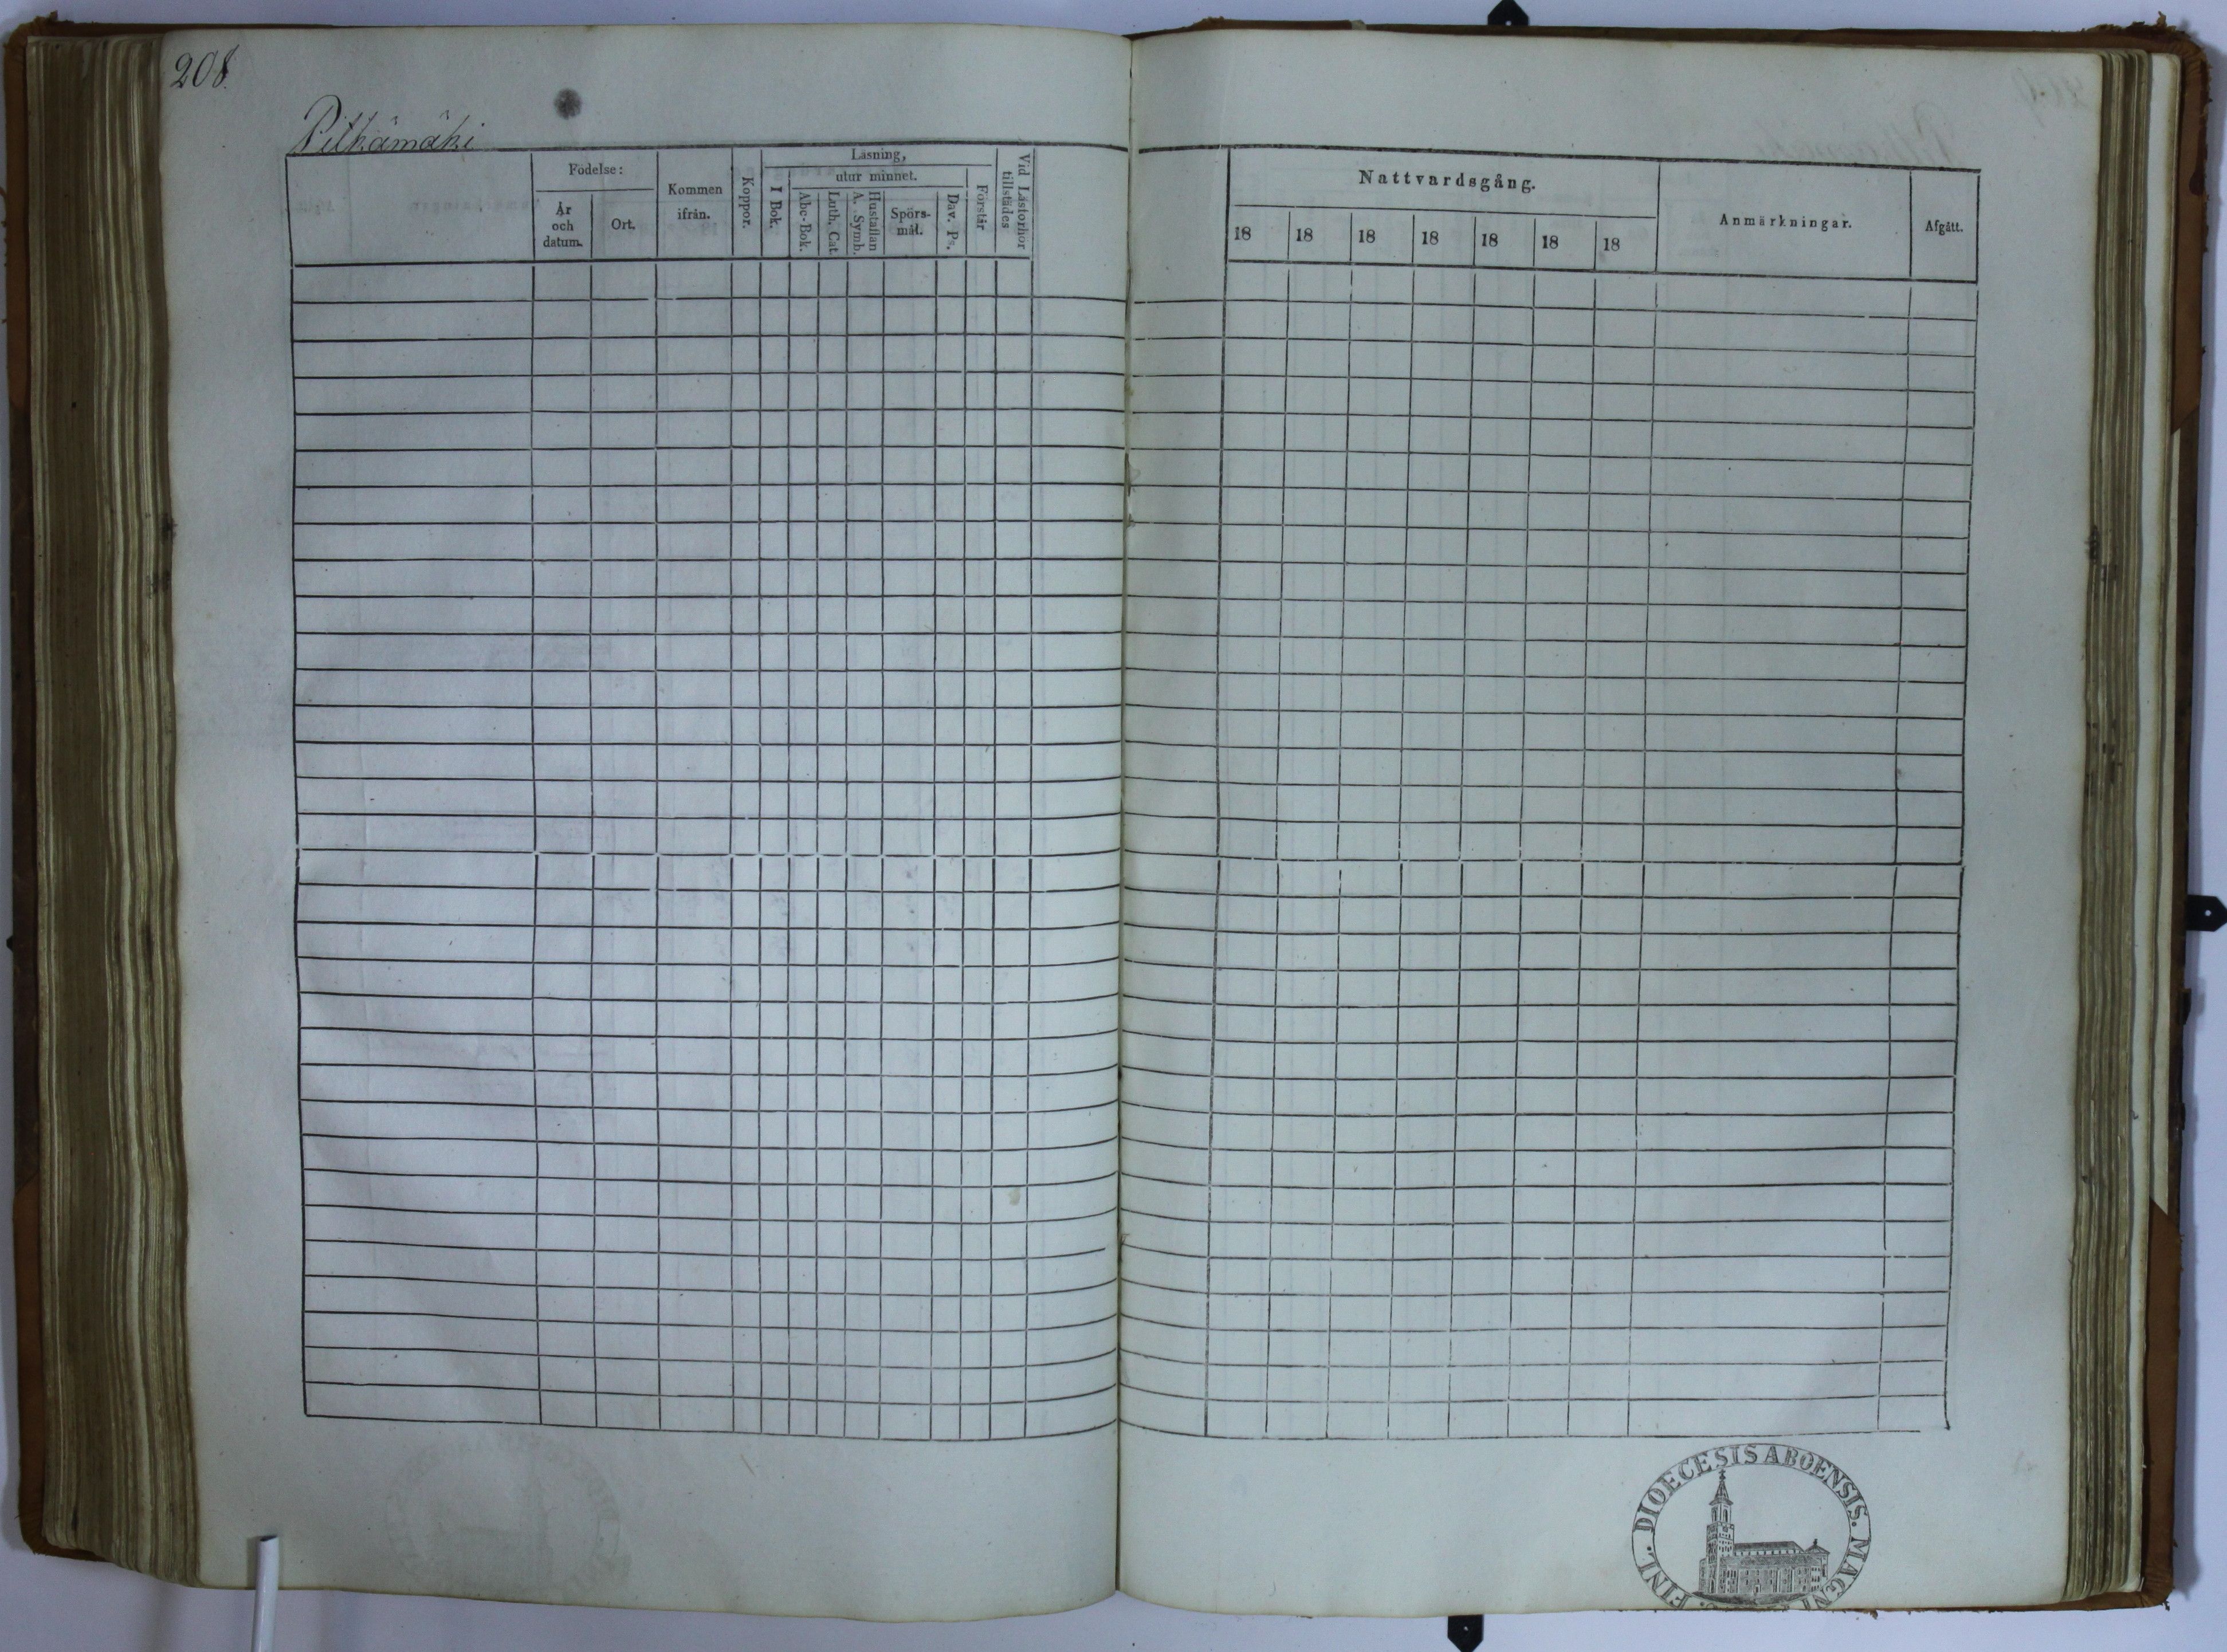 208.
Pitkämäki
Födelse:
År
och
datum.
Ort.
Kommen
ifrån.
Koppor.
Läsning,
I Bok.
utur minnet.
Abc-Bok.
Luth. Cat.
Hustaflan
A. Symb.
Spörs-
mål.
Dav. Ps.
Förstår
Vid Läsförhör
tillstädes
Nattvardsgång.
18 18 18 18 18 18 18
Anmärkningar.
Afgått.
FINL. DIOECESIS ABOENSIS. MAGNI